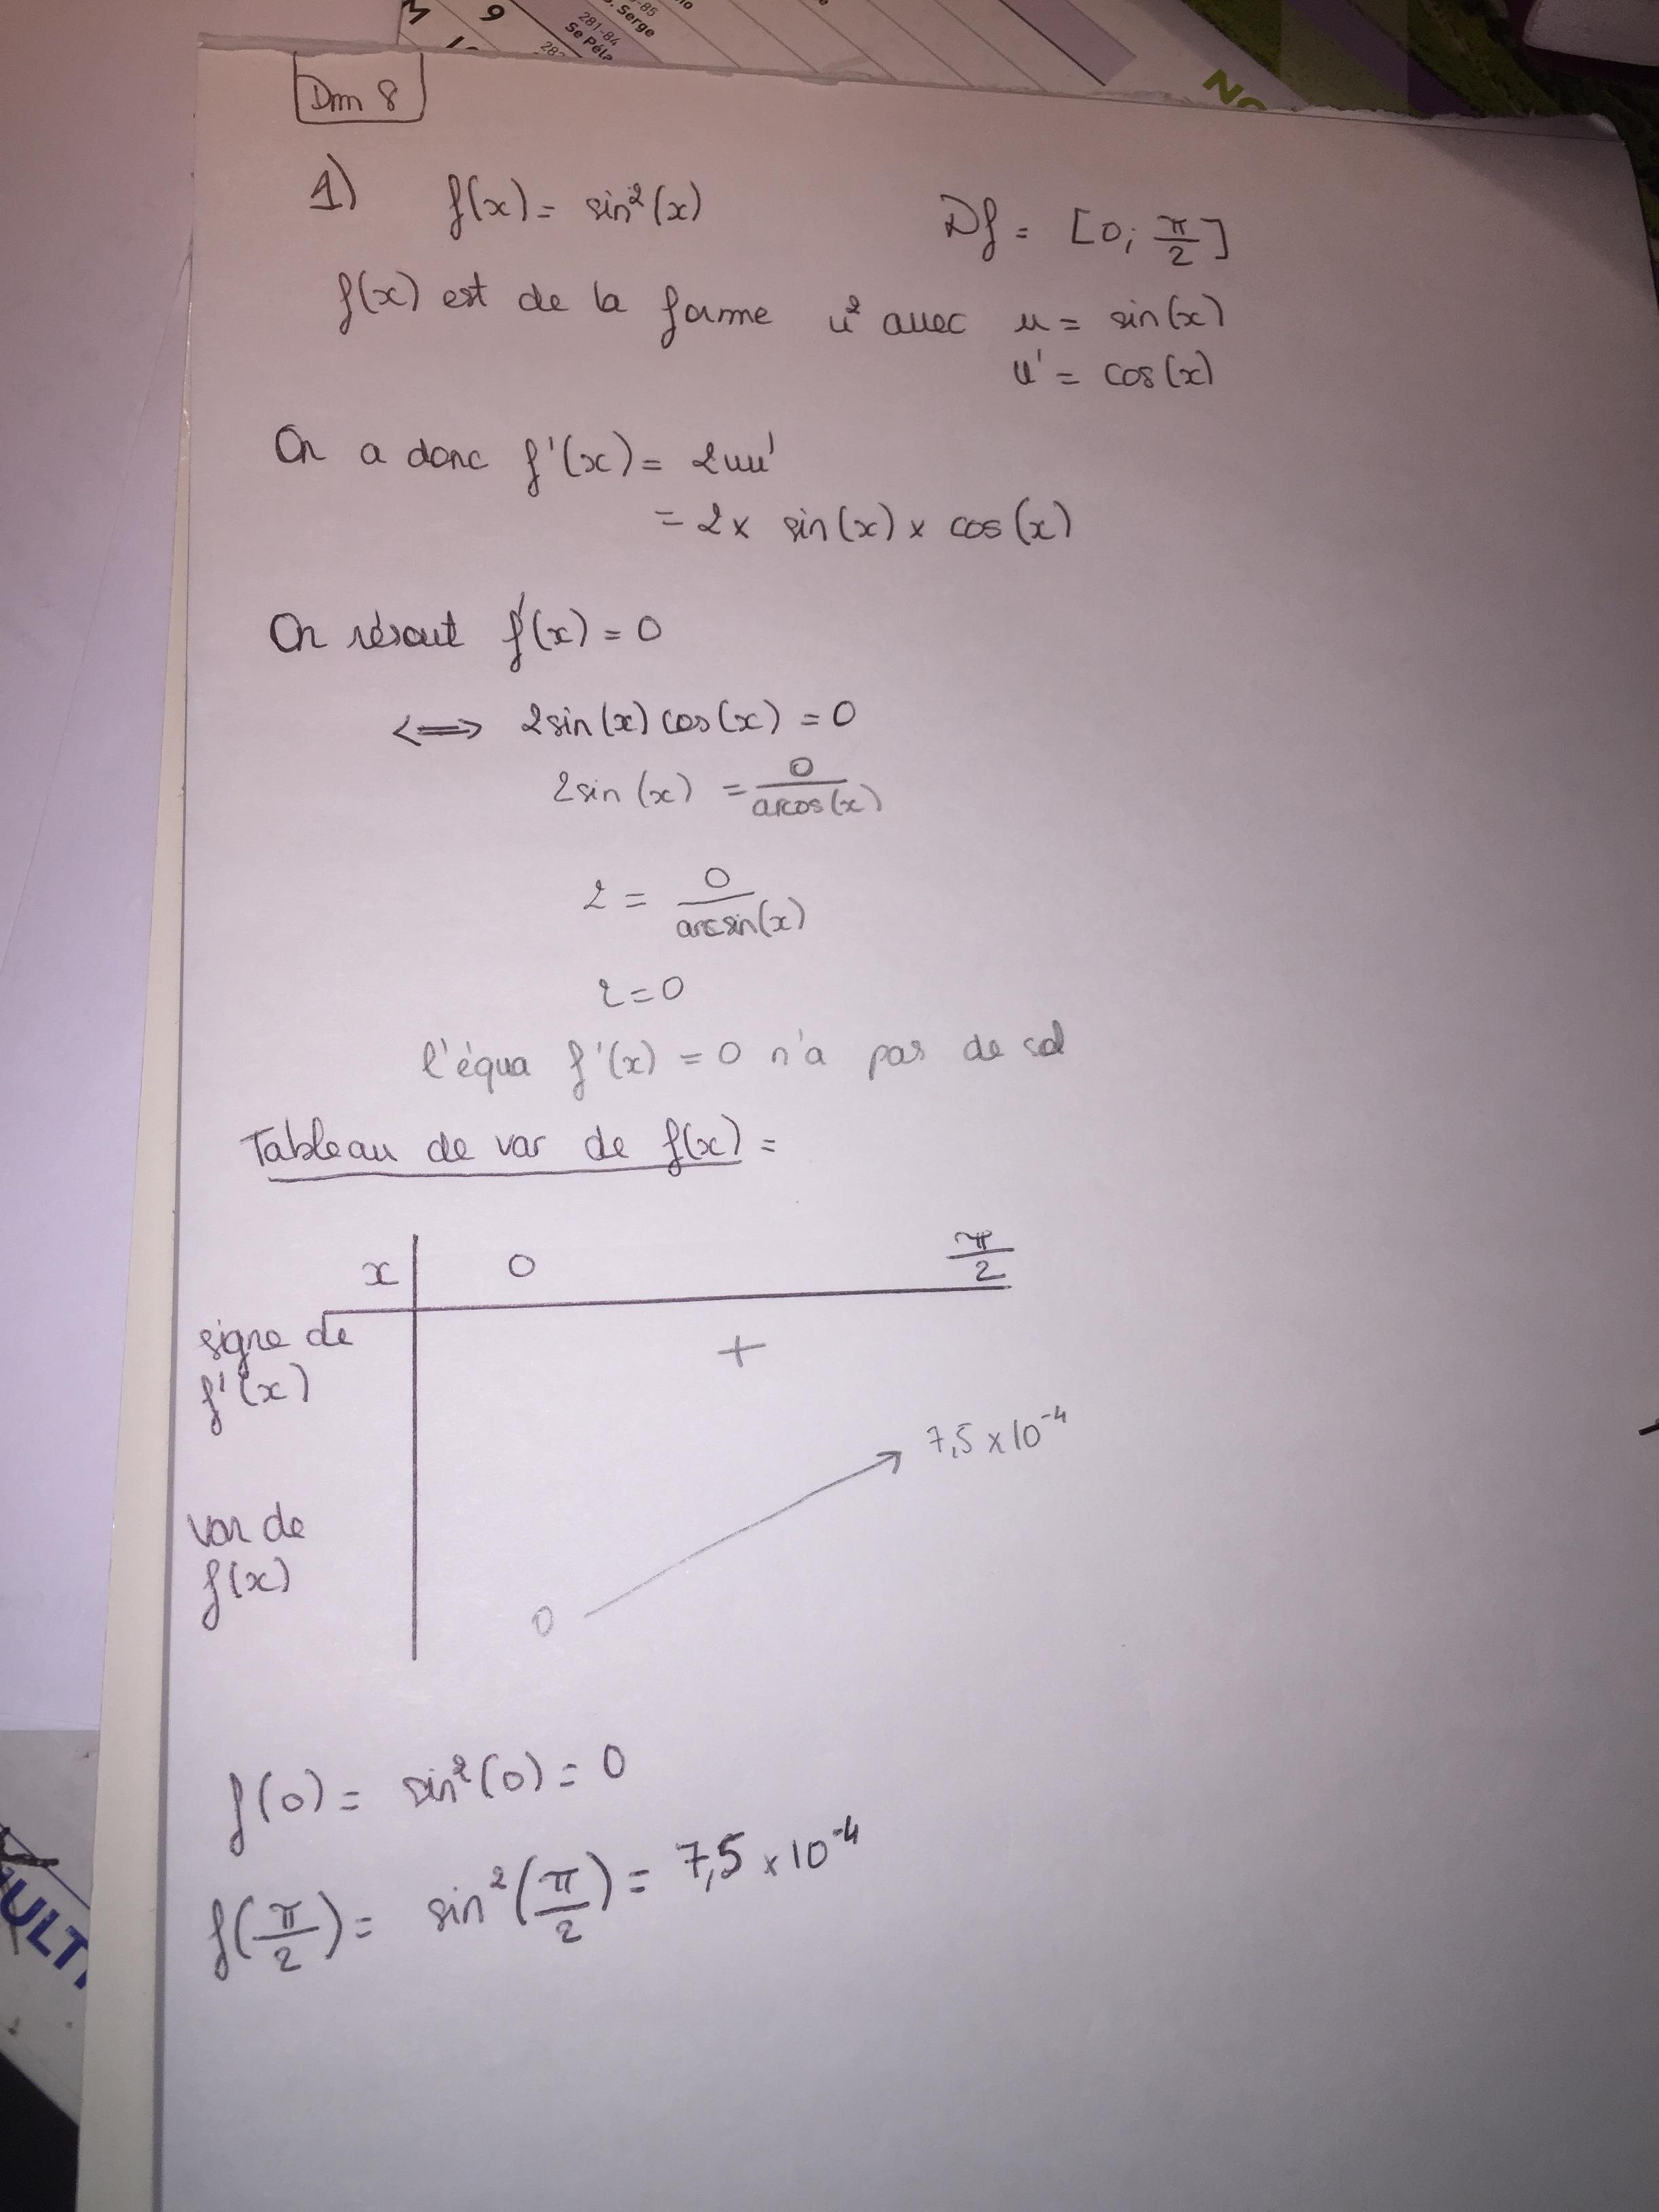 M
9
281-84
Se Péla
-85
. Serge
NO
Dm 8
1) f(x) = sin²(x) Df = [0; π/2]
f(x) est de la forme u² avec u = sin(x)
u' = cos(x)
On a donc f'(x) = 2uu'
= 2 x sin(x) x cos(x)
On résout f'(x) = 0
<=> 2sin(x) cos(x) = 0
2sin(x) = 0/arcos(x)
2 = 0/arcsin(x)
2=0
l'équa f'(x) = 0 n'a pas de sol
Tableau de var de f(x) =
x 0 π/2
signe de +
f'(x)
7,5 x 10⁻⁴
var de
f(x)
0
f(0) = sin²(0) = 0
f(π/2) = sin²(π/2) = 7,5 x 10⁻⁴
ULTI